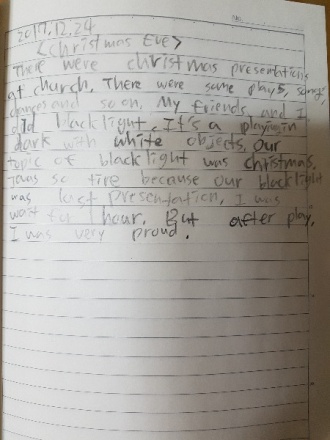 2017.12.24
<Christmas Eve>
There were christmas presentations
at church. There were some plays, songs,
dances and so on. My friends and I
did blacklight. It's a playing in
dark with white objects. Our
topic of blacklight was christmas.
I was so tire because our blacklight
was last presentation, I was
wait for 1 hour. But after play,
I was very proud.